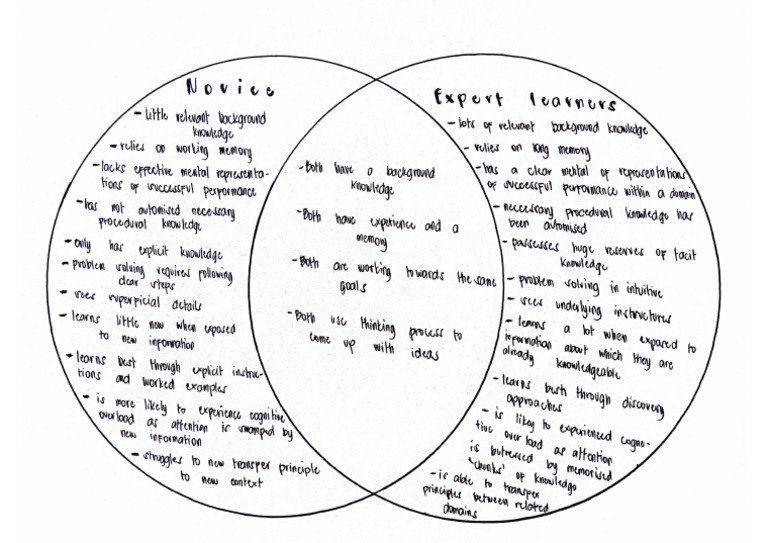 Novice
- Little relevant background
knowledge
- relies on working memory
- lacks effective mental representa-
tions of successful performance
- has not automised necessary
procedural knowledge
- only has explicit knowledge
- problem solving requires following
clear steps
- sees superficial details
- learns little new when exposed
to new information
- learns best through explicit instruc-
tions and worked examples
- is more likely to experience cognitive
overload as attention is swamped by
new information
- struggles to new transfer principle
to new context
- Both have a background
knowledge
- Both have experience and a
memory
- Both are working towards the same
goals
- Both use thinking process to
come up with ideas
Expert learners
- lots of relevant background knowledge
- relies on long memory
- has a clear mental of representations
of successful performance within a domain
- neccessary procedural knowledge has
been automised
- possesses huge reserves of tacit
knowledge
- problem solving in intuitive
- sees underlying instructures
- learns a lot when exposed to
information about which they are
already knowledgeable
- learns through discovery
approaches
- is likely to experienced cogni-
tive overload as attention
is by memorised
'chunks' of knowledge
- is able to transfer
principles between related
domains